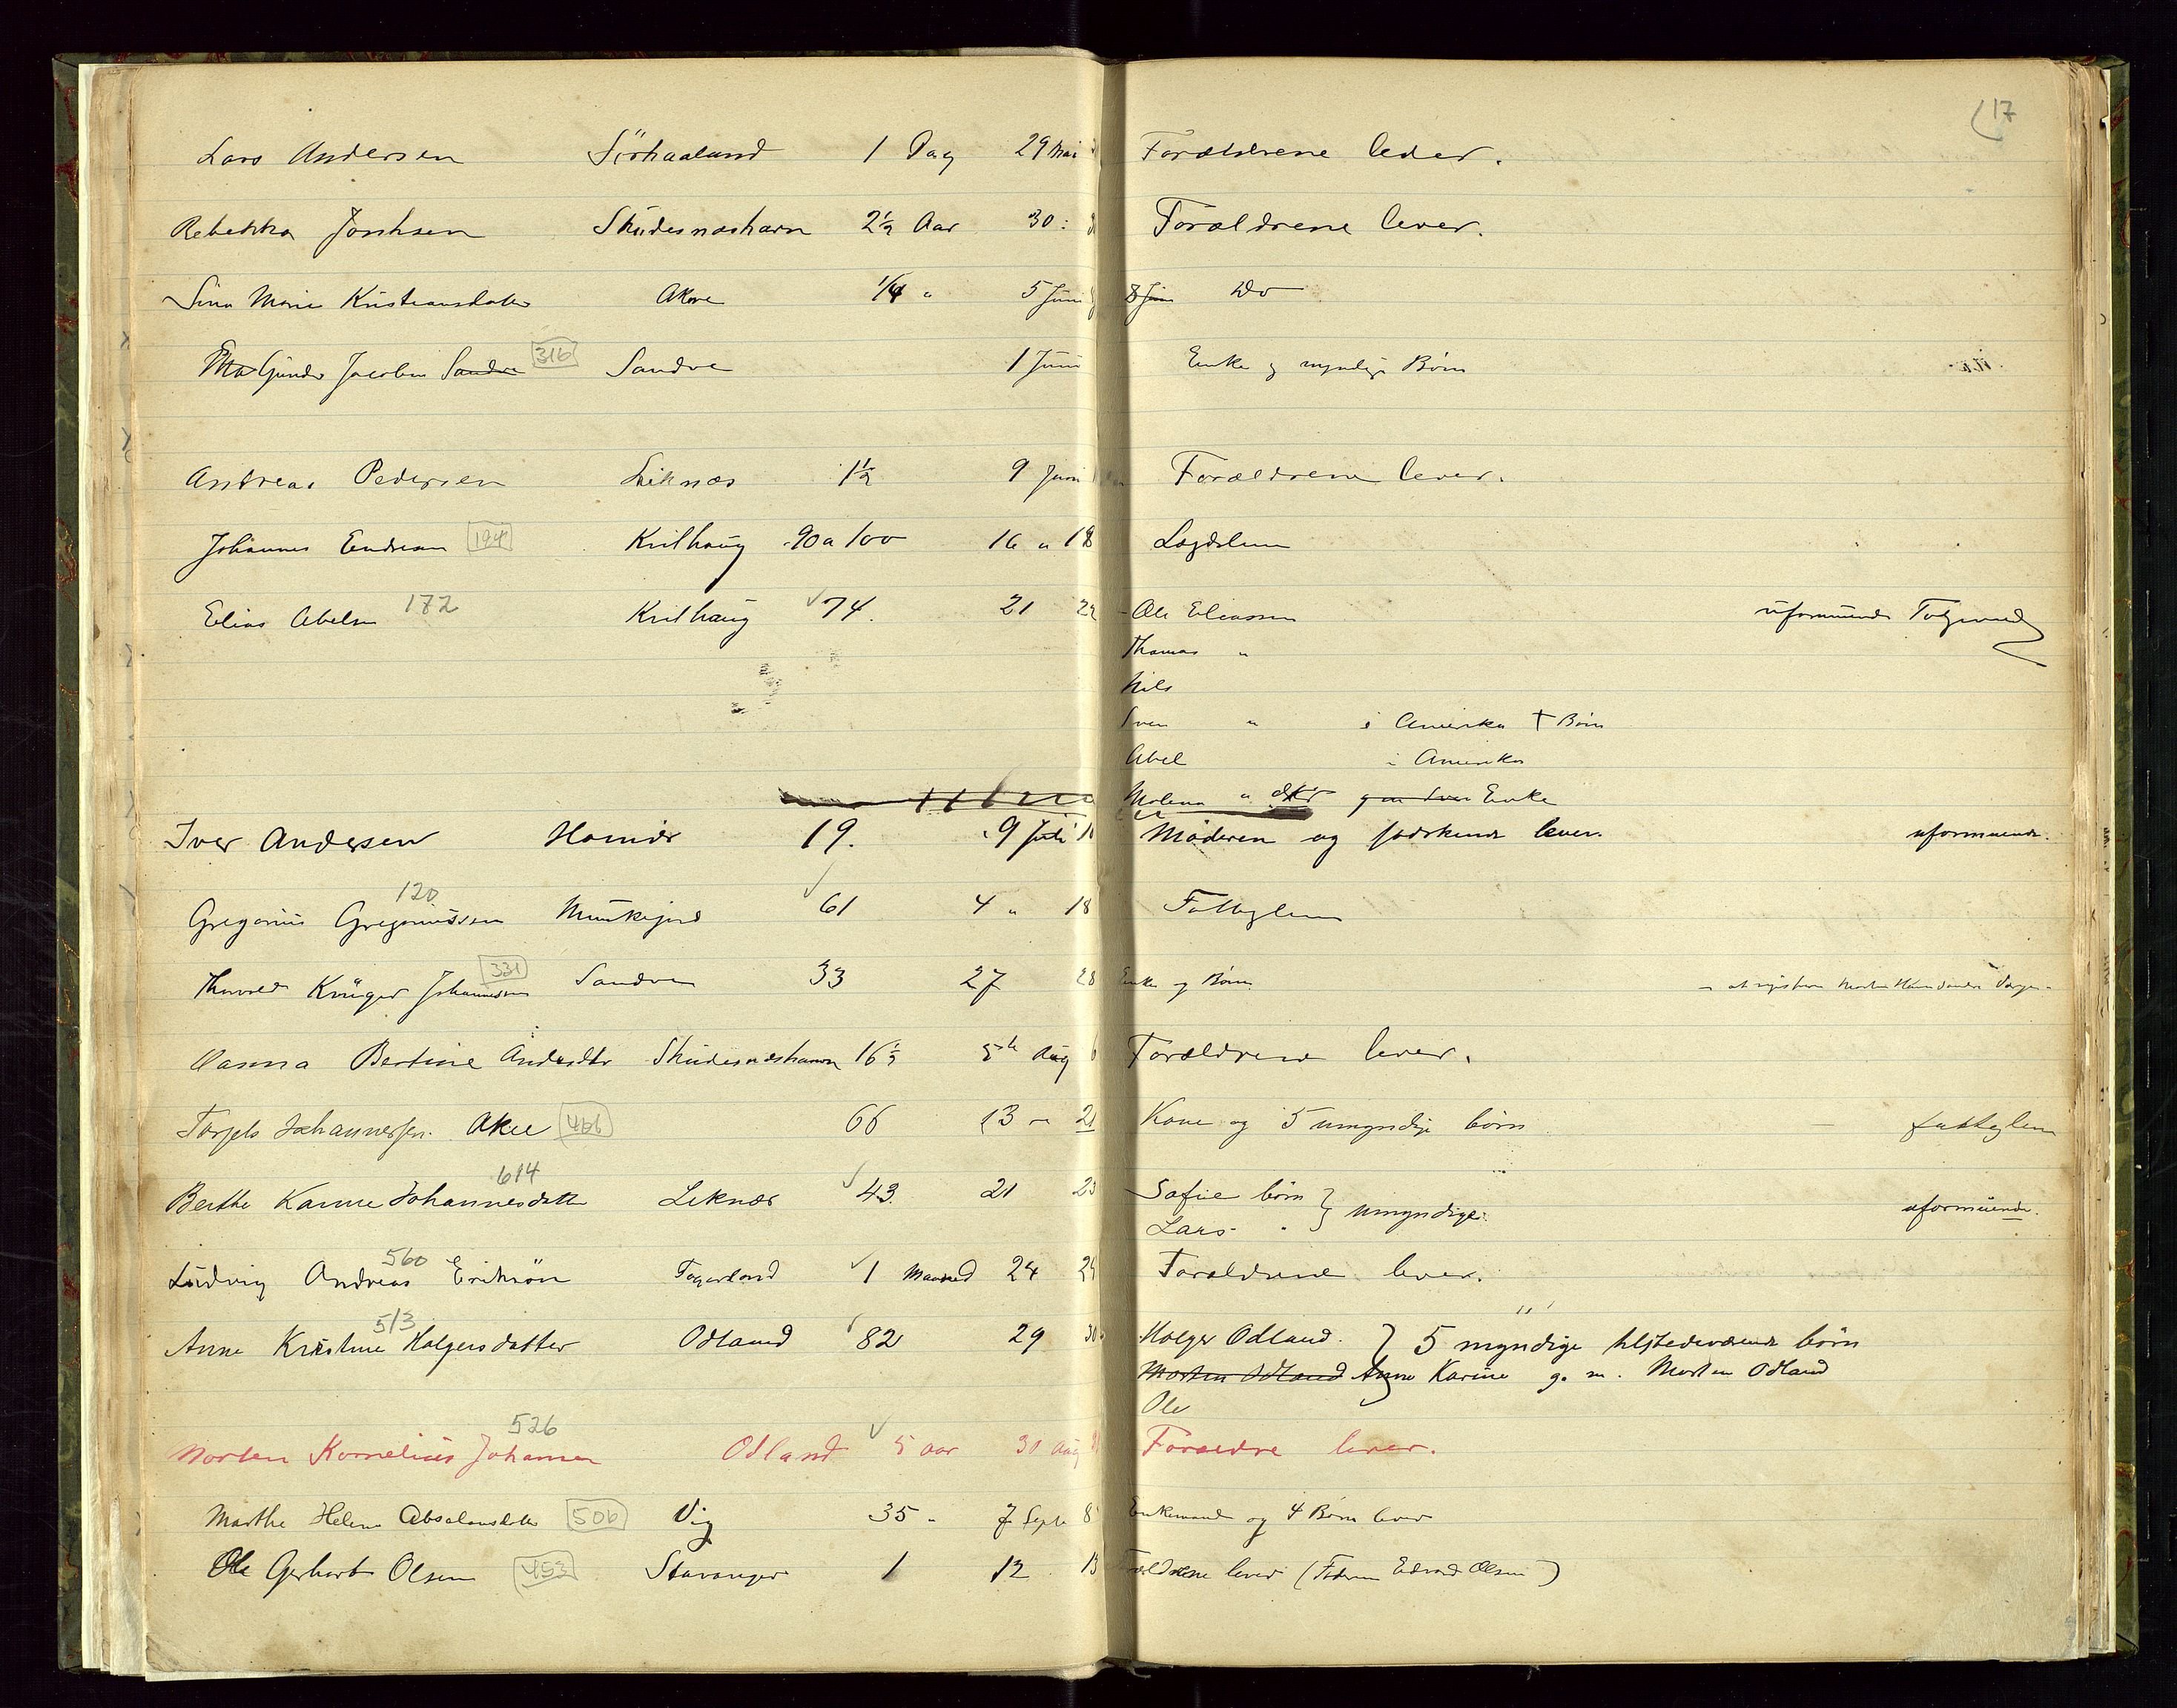 17
Lars Andersen Sörhaaland 1 Dag 29 Mai Forældrene lever.
Rebekka Jonhsen Skudesneshavn 2½ Aar 30: Forældrene lever.
Sina Marie Kristiansdatter Akre ¼ " 5 Juni 8 Juni Do
Gunder Jacobsen Sandve 316 Sandve 1 Juni Enke og myndige Børn
Andreas Pedersen Liknes 1½ 9 Juni Forældrene lever.
Johannes Endresen 194 Kvilhaug 90 a 100 16 " 18 Lægdslem
Elias Abelsen 172 Kvilhaug 74. 21 22 Ole Eliassen uformuende
Thomas "
Nils
Sven " i Amerika † Børn
Abel i Amerika
Malena " dtr Enke
Iver Andersen 19. 9 Juli Moderen og søskende lever. uformuende.
Gregorius Gregoriussen 120 Munkejord 61 4 " 18 Fattiglem
Krüger Johannessen 331 Sandve 33 27 28 Enke og Børn
Hanna Bertine Andersdtr Skudesneshavn 16½ 5te Aug 6 Forældrene lever.
Torjels Johannessen. Akre 466 66 13 — 21 Kone og 5 umyndige børn — fattiglem
Berthe Karine Johannesdatter 614 Leknes 43. 21 23 Sofie børn } umyndige. uformuende.
Lars "
Ludvig Andreas Eriksøn 560 Fagerland 1 Maaned 24 Forældrene lever.
Anne Kristine Holgersdatter 513 Odland 82 29 30 Holger Odland. } 5 myndige tilstedeværende børn
Morten Odland Anne Karine g. m. Morten Odland
Ole
Morten Kornelius Johansen 526 Odland 5 aar 30 Aug Forældre lever.
Marthe Helene Absalonsdatter 506 Vig 35 " 7 Septe 8 Enkemand og 4 Børn lever
Ole Gerhart Olsen 453 Stavanger 1 12 13 Forældrene lever (Faderen Edvard Olsen)